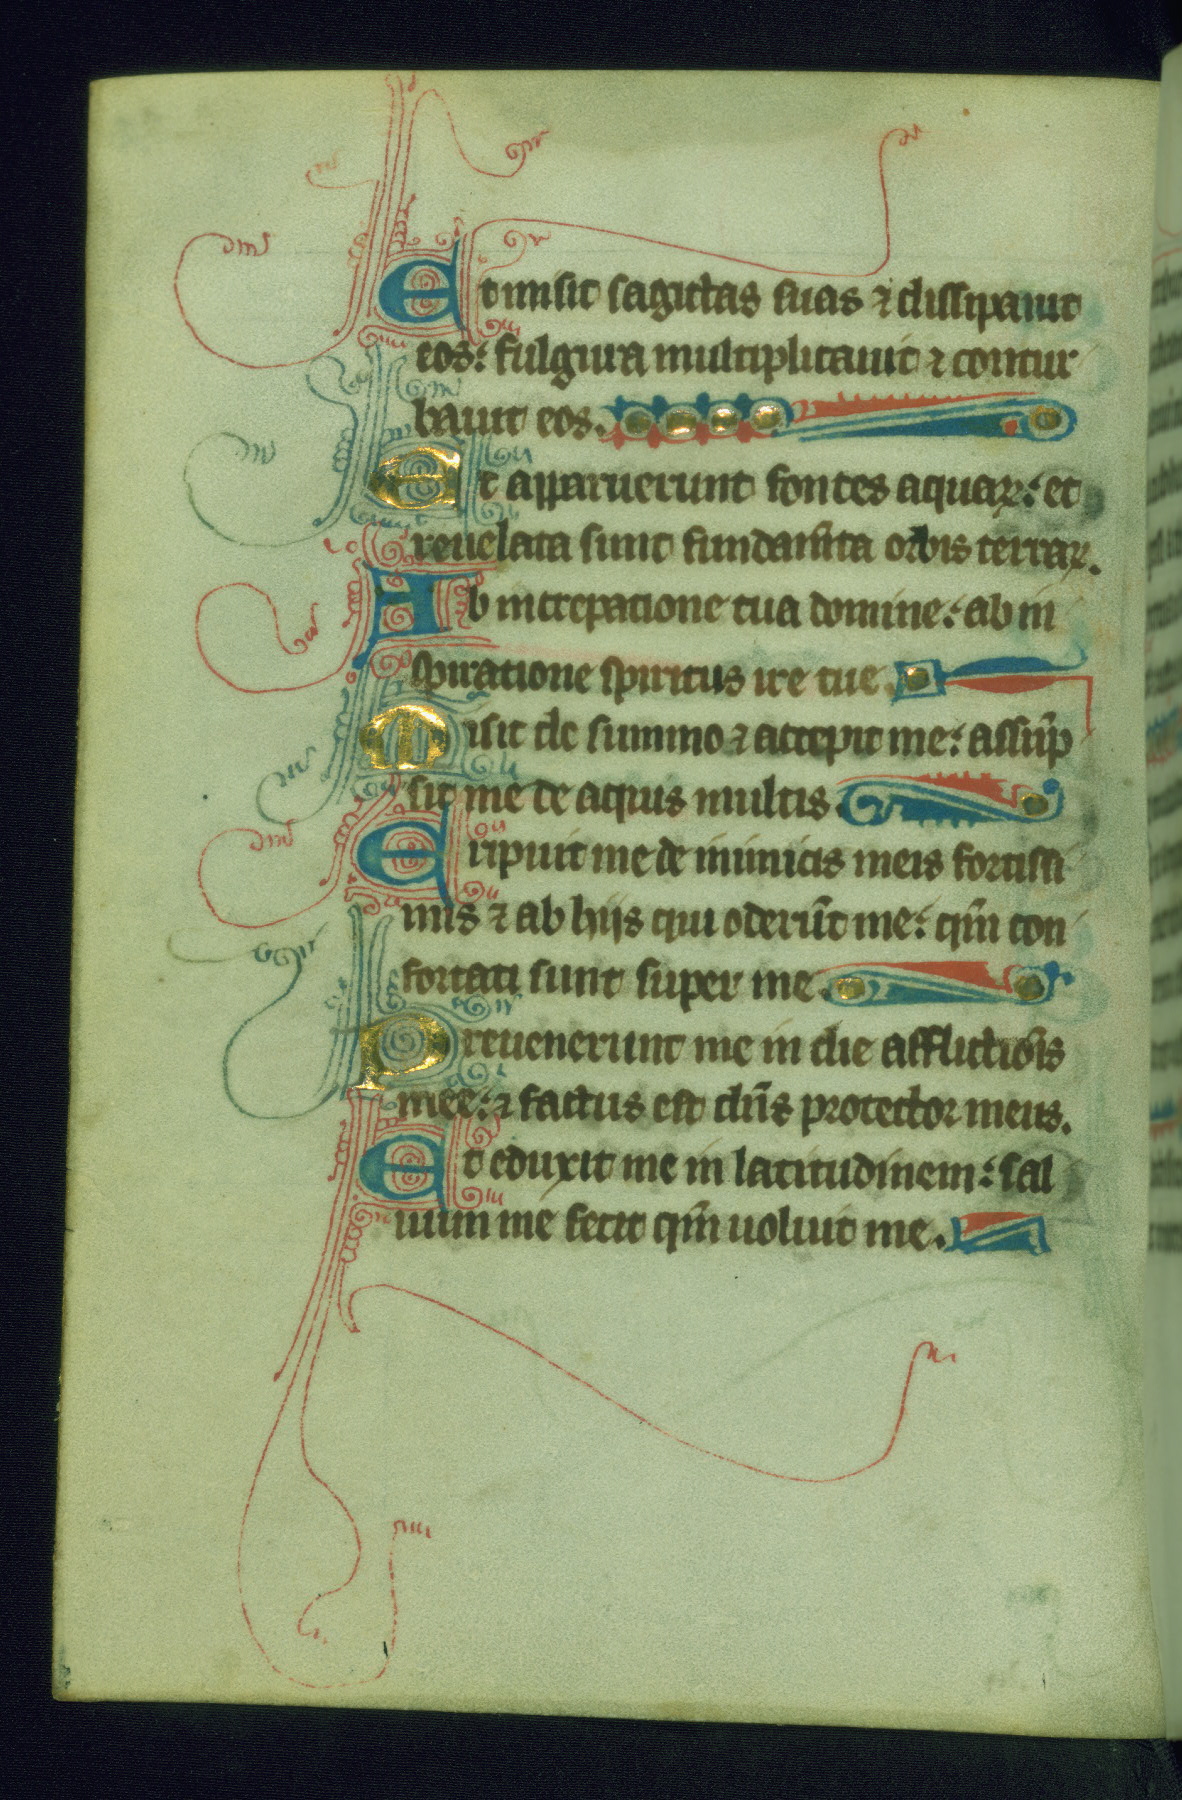 Et misit sagittas suas ⁊ dissipauit
eos: fulgura multiplicauit ⁊ contur
bauit eos.
Et apparuerunt fontes aquaꝝ: et
reuelata sunt fundam̅ta orbis terraꝝ.
Ab increpatione tua domine: ab in
spiratione spiritus ire tue.
Misit de summo ⁊ accepit me: assu̅p
sit me de aquis multis.
Eripuit me de inimicis meis fortissi
mis ⁊ ab hijs qui oderu̅t me: qm̅ con
fortati sunt super me.
Preuenerunt me in die afflictio̅is
mee: ⁊ factus est dn̅s protector meus.
Et eduxit me in latitudinem: sal
uum me fecit qm̅ uoluit me.